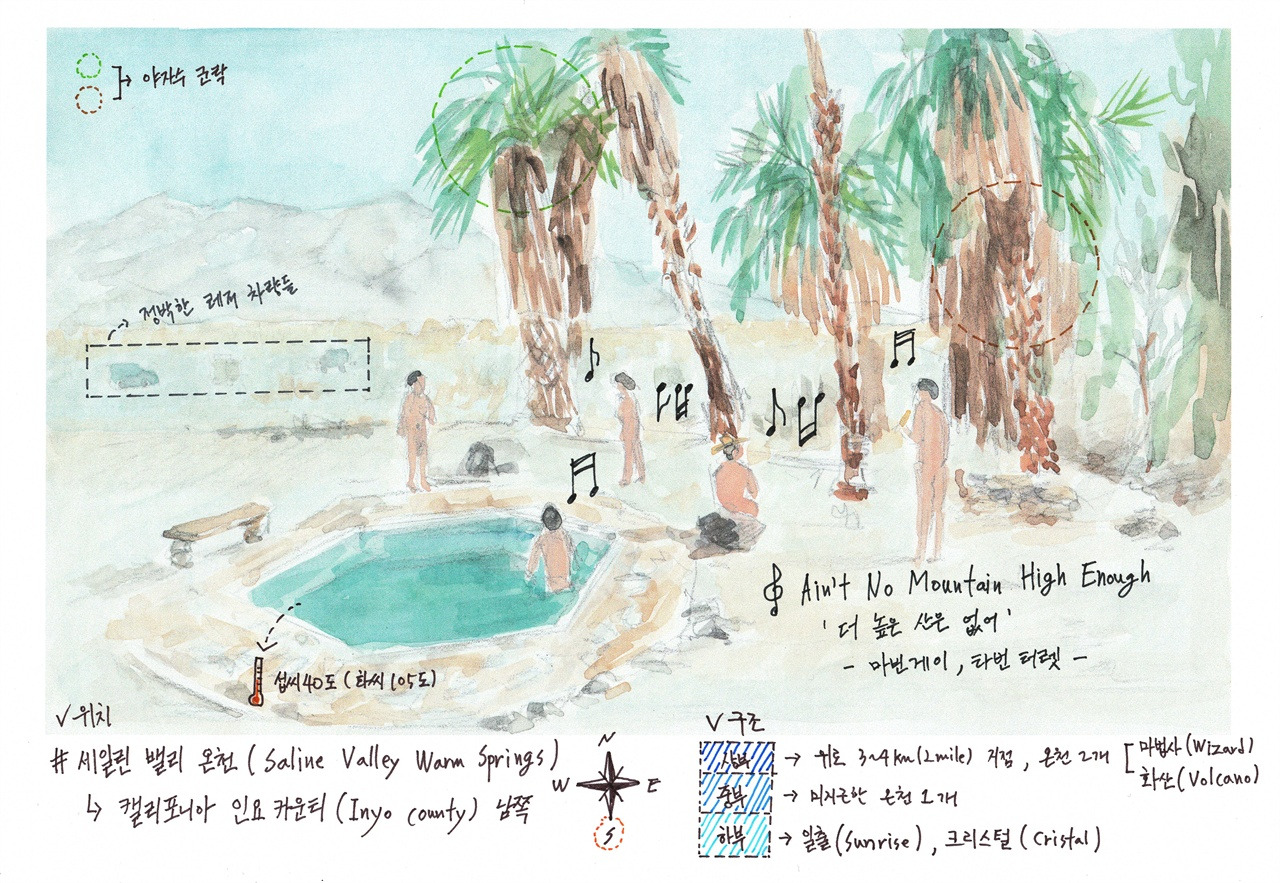 야자수 군락
정박한 레저 차량들
Ain't No Mountain High Enough
'더 높은 산은 없어'
- 마빈게이, 타번 터렛 -
섭씨 40도 (화씨 105도)
√ 위치
# 세일린 밸리 온천 (Saline Valley Warm Springs)
↳ 캘리포니아 인요 카운티 (Inyo county) 남쪽
N
W E
S
√ 구조
상부 → 위로 3~4km(2mile) 지점, 온천 2개 [ 마법사(Wizard)
화산(Volcano)
중부 → 미지근한 온천 1개
하부 → 일출(Sunrise), 크리스털(Cristal)